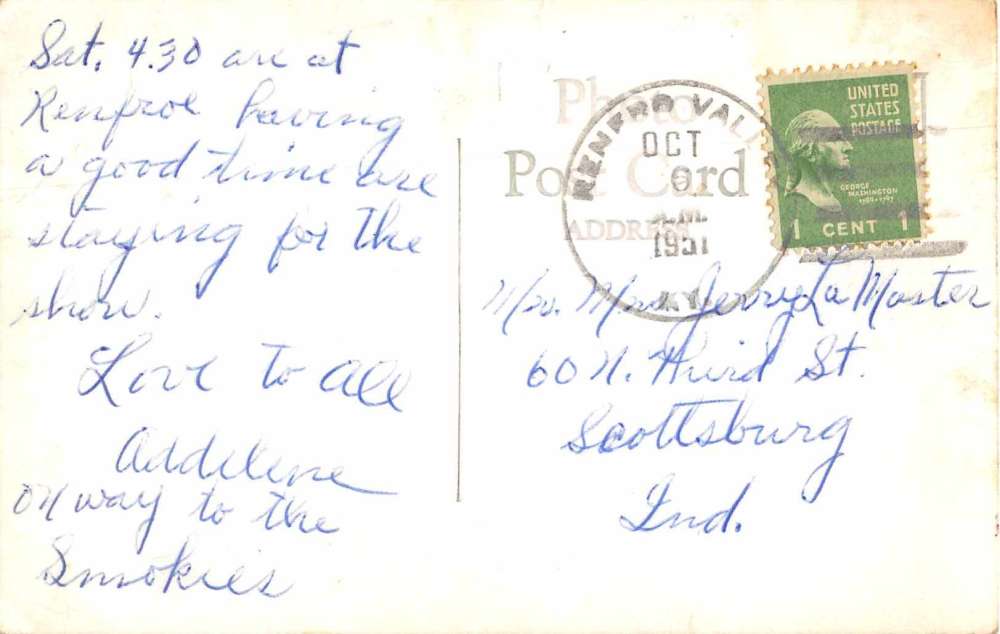 Sat. 4.30 are at
Renfroe having
a good time are
staying for the
show.
Love to all
Addilene
on way to the
Smokies
Photo
Post Card
ADDRESS
RENFRO VAL
OCT
1951
KY.
UNITED
STATES
POSTAGE
GEORGE
WASHINGTON
1789-1797
1 CENT 1
Mr. Mrs Jerry La Master
60 N. Third St.
Scottsburg
Ind.